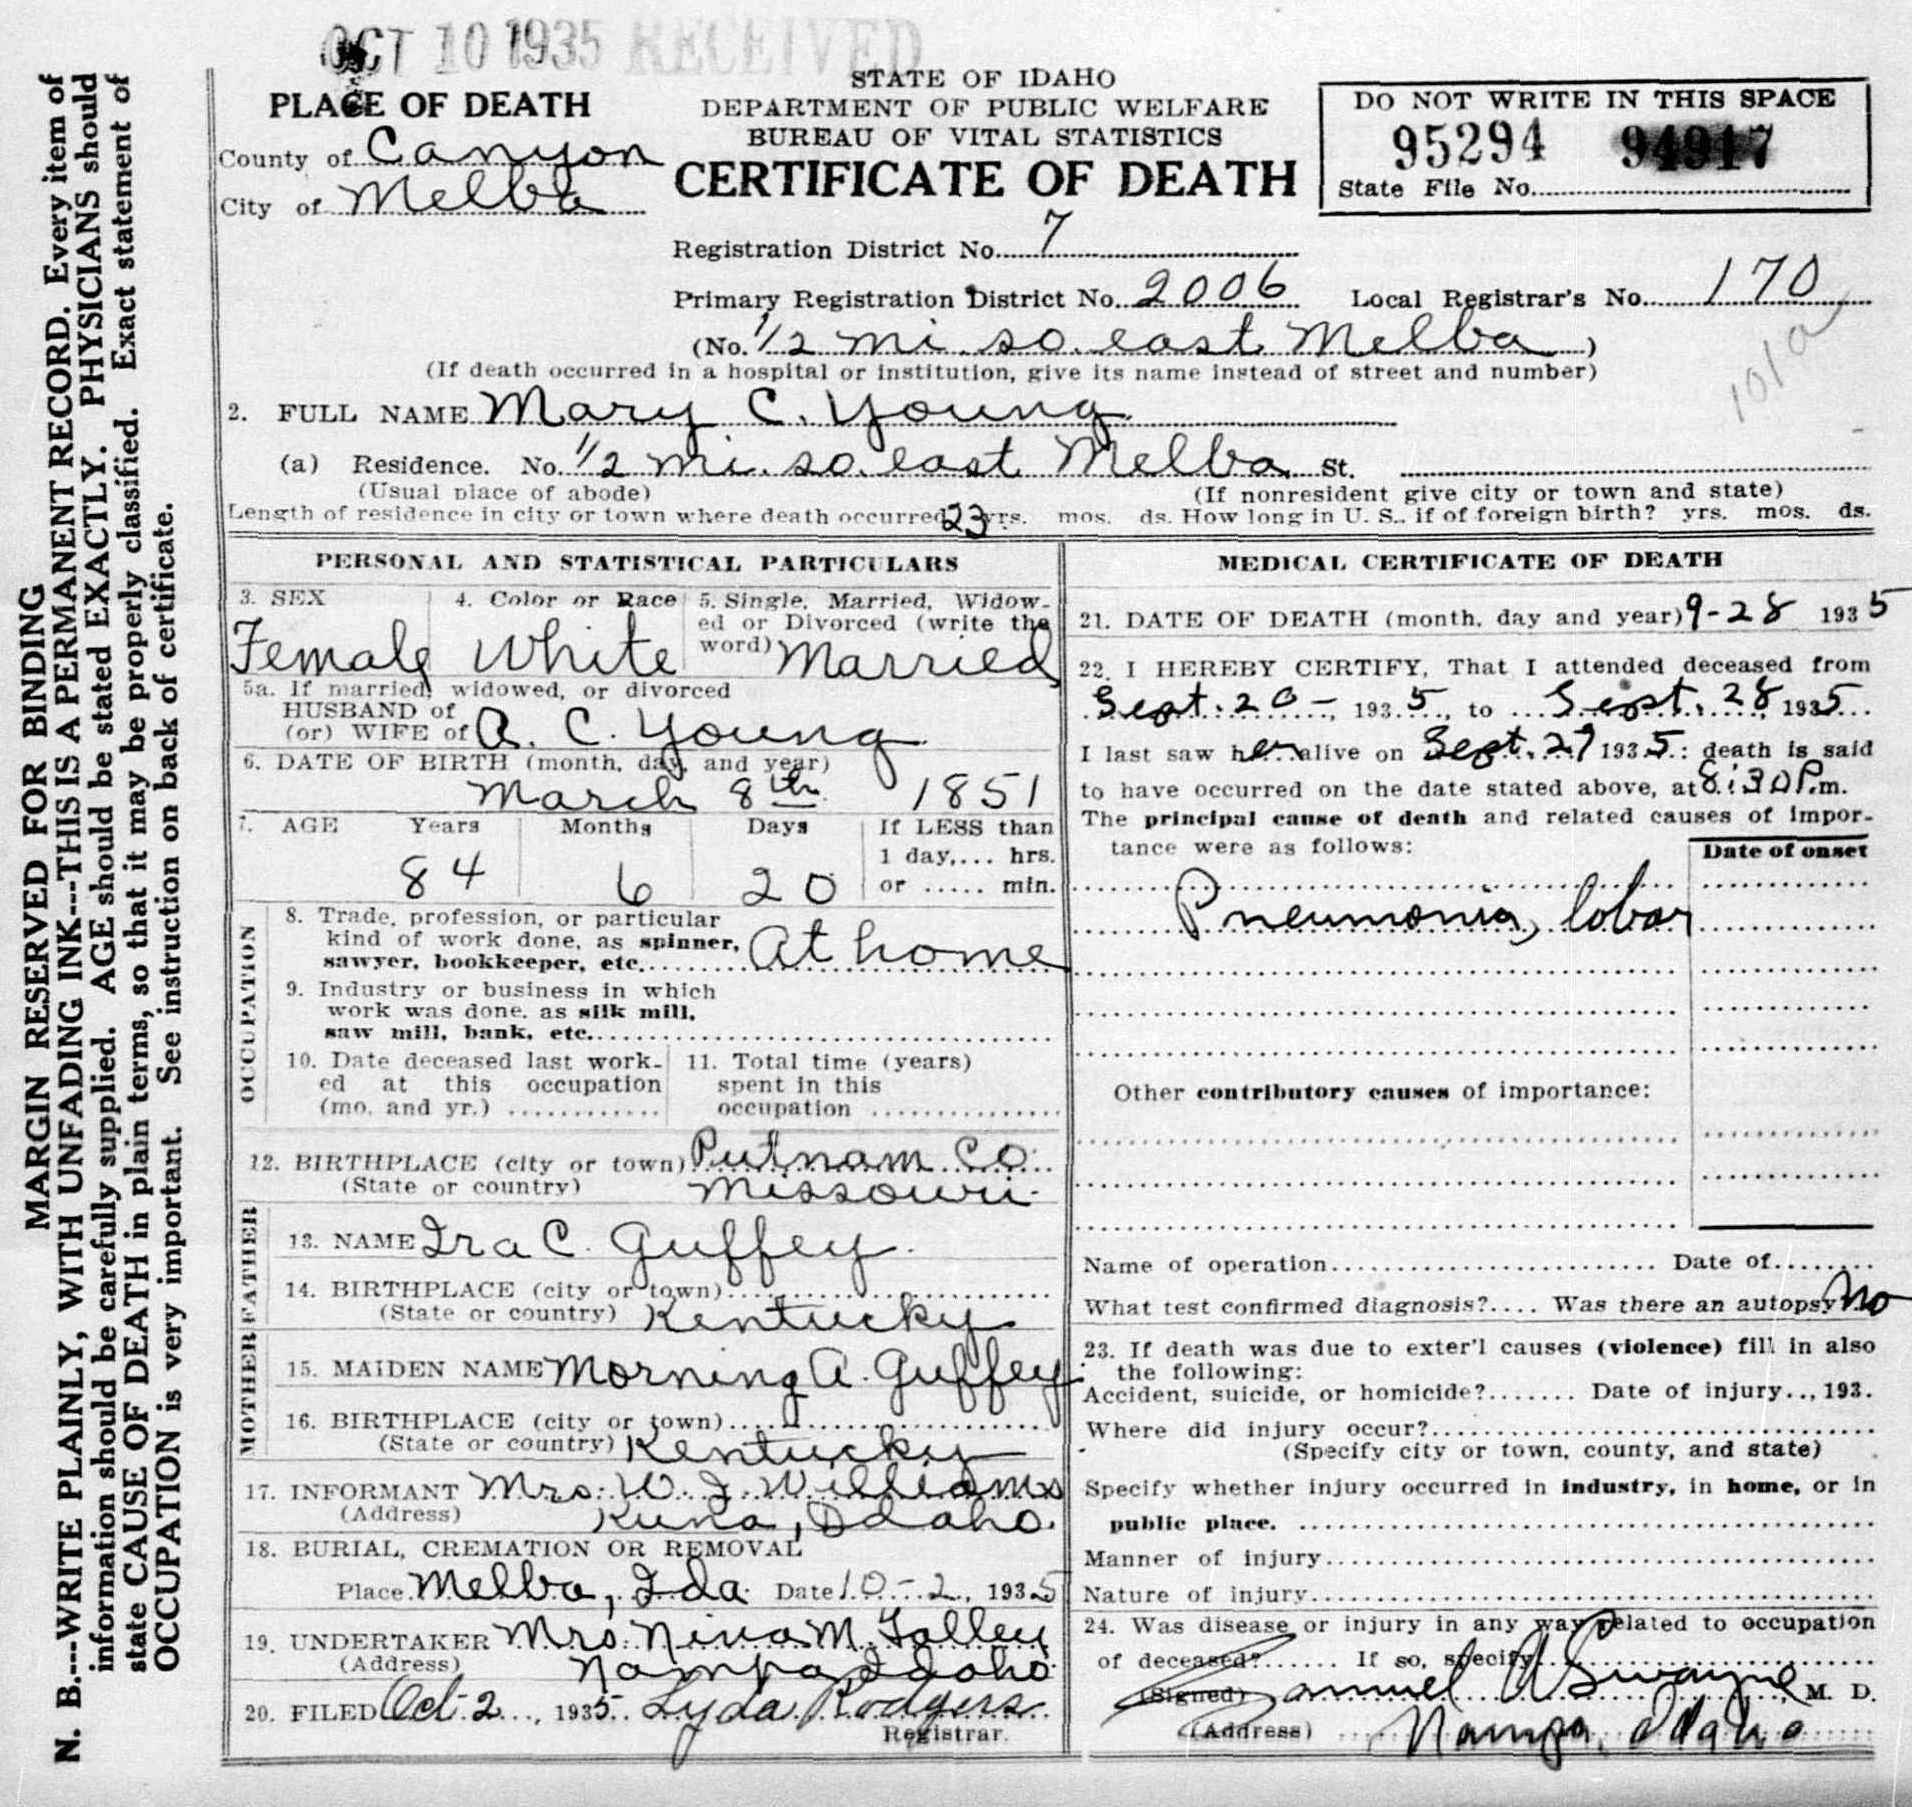 OCT 10 1935 RECEIVED
MARGIN RESERVED FOR BINDING
N. B.---WRITE PLAINLY, WITH UNFADING INK---THIS IS A PERMANENT RECORD. Every item of
information should be carefully supplied. AGE should be stated EXACTLY. PHYSICIANS should
state CAUSE OF DEATH in plain terms, so that it may be properly classified. Exact statement of
OCCUPATION is very important. See instruction on back of certificate.
PLACE OF DEATH
County of Canyon
City of Melba
STATE OF IDAHO
DEPARTMENT OF PUBLIC WELFARE
BUREAU OF VITAL STATISTICS
CERTIFICATE OF DEATH
DO NOT WRITE IN THIS SPACE
95294 94917
State File No.
Registration District No. 7
Primary Registration District No. 2006 Local Registrar's No. 170
(No. 1/2 mi. so. east Melba)
101a
(If death occurred in a hospital or institution, give its name instead of street and number)
2. FULL NAME Mary C. Young
(a) Residence. No. 1/2 mi. so. east Melba St.
(Usual place of abode) (If nonresident give city or town and state)
Length of residence in city or town where death occurred 23 yrs. mos. ds. How long in U. S., if of foreign birth? yrs. mos. ds.
PERSONAL AND STATISTICAL PARTICULARS
3. SEX Female
4. Color or Race White
5. Single, Married, Widow-
ed or Divorced (write the
word) Married
5a. If married, widowed, or divorced
HUSBAND of
(or) WIFE of A. C. Young
6. DATE OF BIRTH (month, day, and year)
March 8th 1851
7. AGE Years Months Days If LESS than
1 day,... hrs.
84 6 20 or ..... min.
OCCUPATION
8. Trade, profession, or particular
kind of work done, as spinner,
sawyer, bookkeeper, etc. At home
9. Industry or business in which
work was done, as silk mill,
saw mill, bank, etc.
10. Date deceased last work-
ed at this occupation
(mo. and yr.)
11. Total time (years)
spent in this
occupation
12. BIRTHPLACE (city or town) Putnam Co.
(State or country) Missouri
FATHER
13. NAME Ira C. Guffey
14. BIRTHPLACE (city or town)
(State or country) Kentucky
MOTHER
15. MAIDEN NAME Morning A. Guffey
16. BIRTHPLACE (city or town)
(State or country) Kentucky
17. INFORMANT Mrs. W. J. Williams
(Address) Kuna, Idaho.
18. BURIAL, CREMATION OR REMOVAL
Place Melba, Ida. Date 10-2, 1935
19. UNDERTAKER Mrs. Nina M. Talley
(Address) Nampa Idaho
20. FILED Oct. 2, 1935 Lyda Rodgers
Registrar.
MEDICAL CERTIFICATE OF DEATH
21. DATE OF DEATH (month, day and year) 9-28 1935
22. I HEREBY CERTIFY, That I attended deceased from
Sept. 20-, 1935, to Sept. 28, 1935
I last saw her alive on Sept. 27 1935: death is said
to have occurred on the date stated above, at 8:30 P.m.
The principal cause of death and related causes of impor-
tance were as follows:
Date of onset
Pneumonia, lobar
Other contributory causes of importance:
Name of operation Date of
What test confirmed diagnosis?.... Was there an autopsy No
23. If death was due to exter'l causes (violence) fill in also
the following:
Accident, suicide, or homicide?....... Date of injury..., 193.
Where did injury occur?
(Specify city or town, county, and state)
Specify whether injury occurred in industry, in home, or in
public place.
Manner of injury
Nature of injury
24. Was disease or injury in any way related to occupation
of deceased?...... If so, specify
(Signed) Samuel A Swayne, M. D.
(Address) Nampa, Idaho